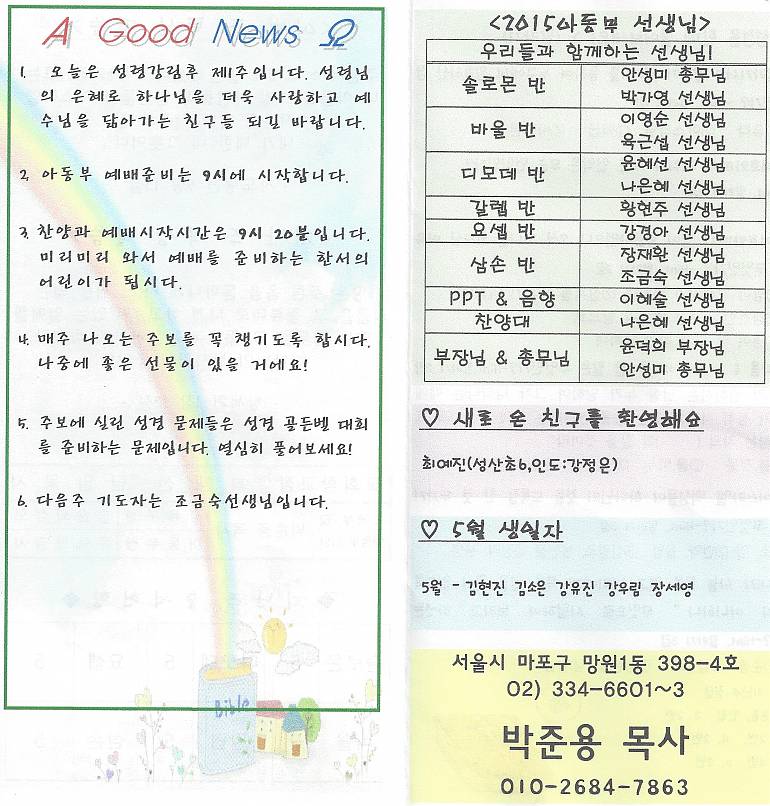 A Good News Ω
1. 오늘은 성령강림후 제1주입니다. 성령님
의 은혜로 하나님을 더욱 사랑하고 예
수님을 닮아가는 친구들 되길 바랍니다.
2. 아동부 예배준비는 9시에 시작합니다.
3. 찬양과 예배시작시간은 9시 20분입니다.
미리미리 와서 예배를 준비하는 한서의
어린이가 됩시다.
4. 매주 나오는 주보를 꼭 챙기도록 합시다.
나중에 좋은 선물이 있을 거에요!
5. 주보에 실린 성경 문제들은 성경 골든벨 대회
를 준비하는 문제입니다. 열심히 풀어보세요!
6. 다음주 기도자는 조금숙선생님입니다.
Bible
<2015아동부 선생님>
우리들과 함께하는 선생님!
솔로몬 반 안성미 총무님
박가영 선생님
바울 반 이영순 선생님
육근섭 선생님
디모데 반 윤혜선 선생님
나은혜 선생님
갈렙 반 황현주 선생님
요셉 반 강경아 선생님
삼손 반 장재환 선생님
조금숙 선생님
PPT & 음향 이혜술 선생님
찬양대 나은혜 선생님
부장님 & 총무님 윤덕희 부장님
안성미 총무님
♡ 새로 온 친구를 환영해요
최예진(성산초6,인도:강정은)
♡ 5월 생일자
5월 - 김현진 김소은 강유진 강우림 장세영
서울시 마포구 망원1동 398-4호
02) 334-6601~3
박준용 목사
010-2684-7863